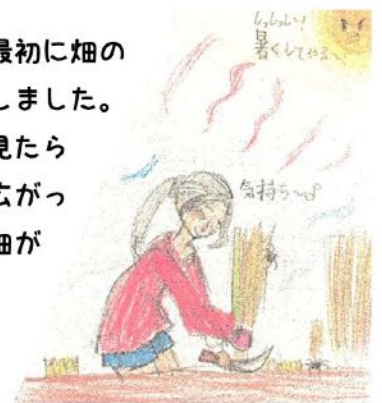 最初に畑の
しました。
見たら
広がっ
畑が
暑くしてやる〜
気持ち〜♪